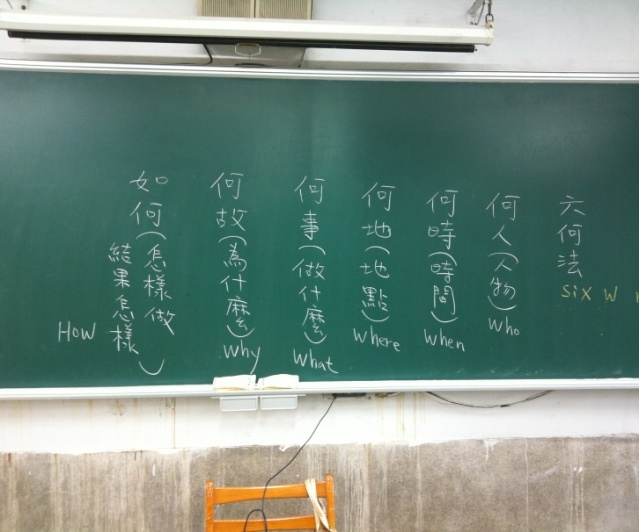 六何法
six W
何人(人物)
who
何時(時間)
when
何地(地點)
where
何事(做什麼)
what
何故(為什麼)
why
如何(怎樣做
結果怎樣)
How